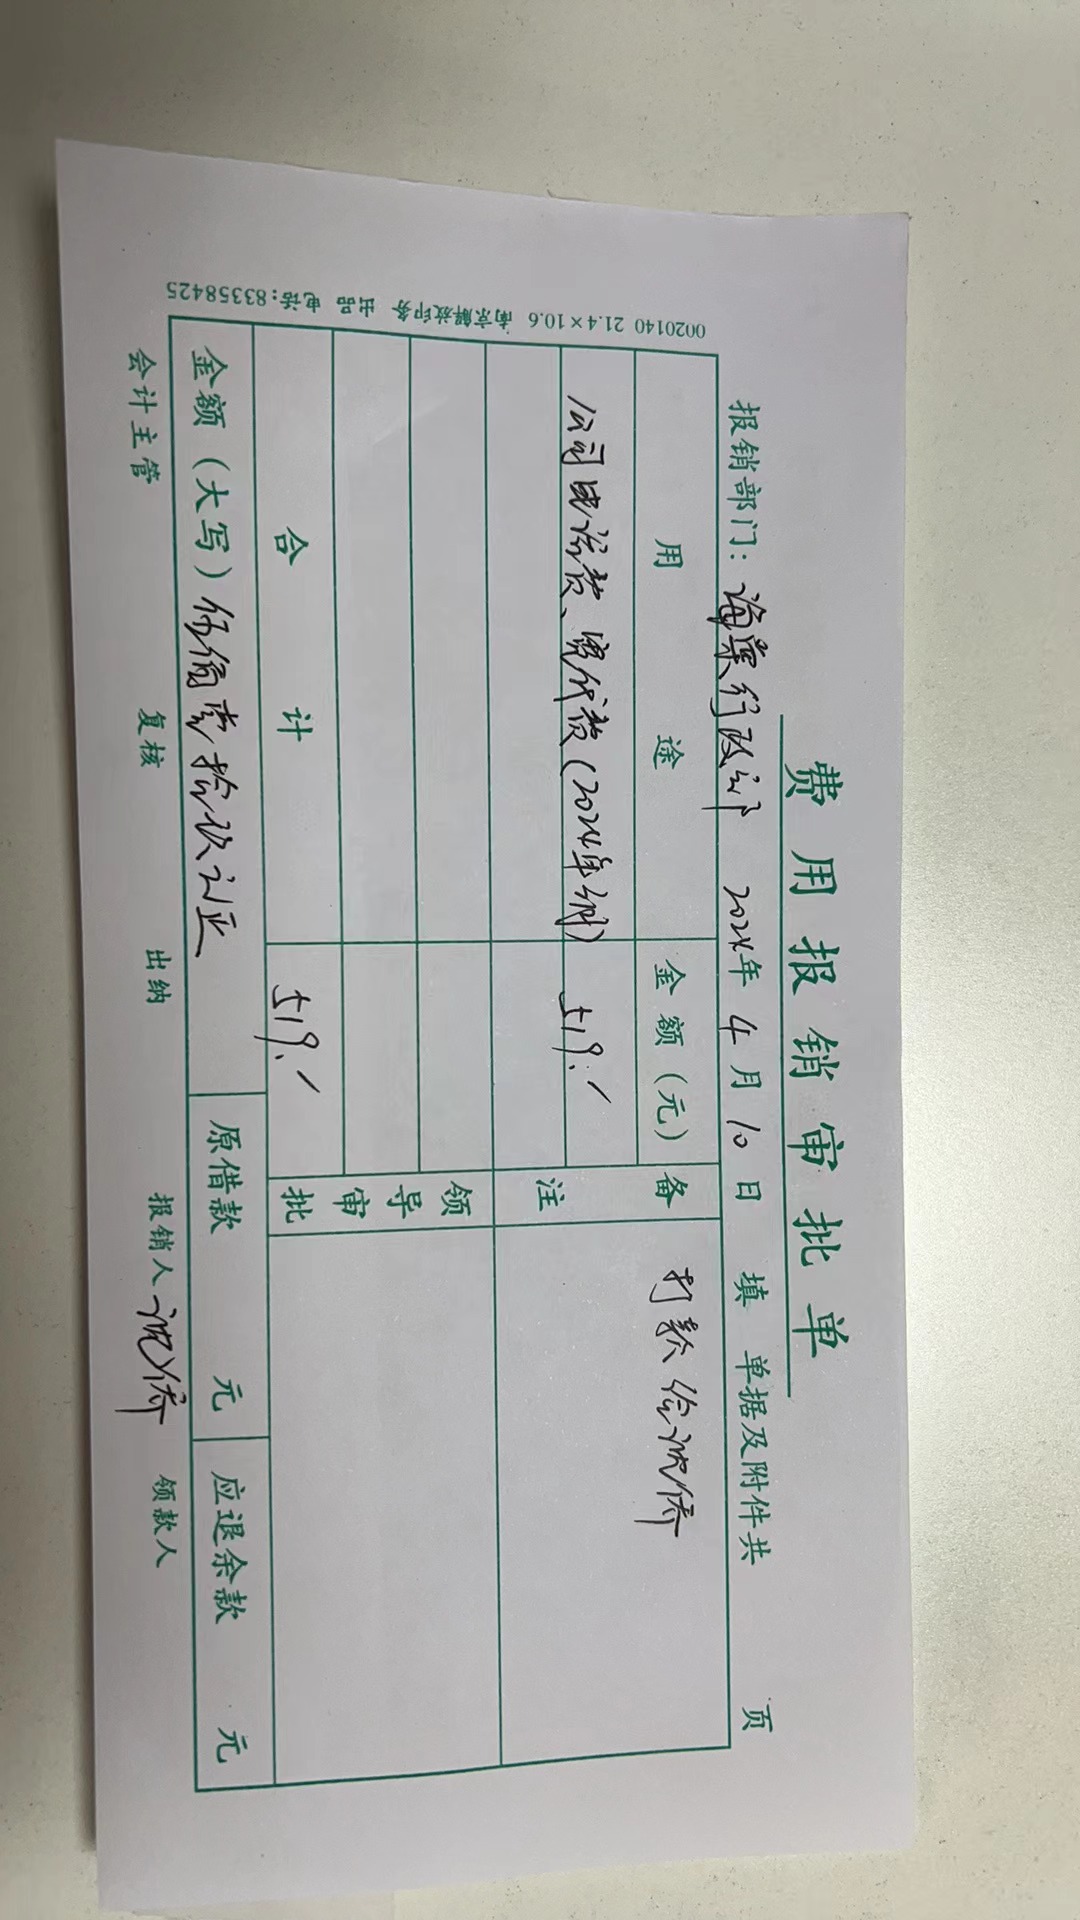 费用报销审批单
报销部门：海棠行政部 2024年 4月 10日 填 单据及附件共 页
用途 金额（元） 备注 打款给沈侨
公司电话费、宽带费（2024年 519.-
领导审批
合计 519.-
金额（大写）伍佰壹拾玖元正 原借款 元 应退余款 元
会计主管 复核 出纳 报销人 沈侨 领款人
0020140 21.4×10.6 南京解放印务 出品 电话：83358425